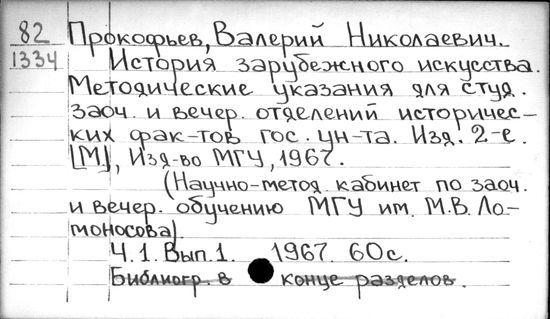 82 Прокофьев, Валерий Николаевич.
1334 История зарубежного искусства.
Методические указания для студ.
заоч. и вечер. отделений историчес-
ких фак-тов гос. ун-та. Изд. 2-е.
[М], Изд-во МГУ, 1967.
(Научно-метод. кабинет по заоч.
и вечер. обучению МГУ им. М.В. Ло-
моносова).
Ч.1. Вып.1. 1967. 60с.
Библиогр. в конце разделов.